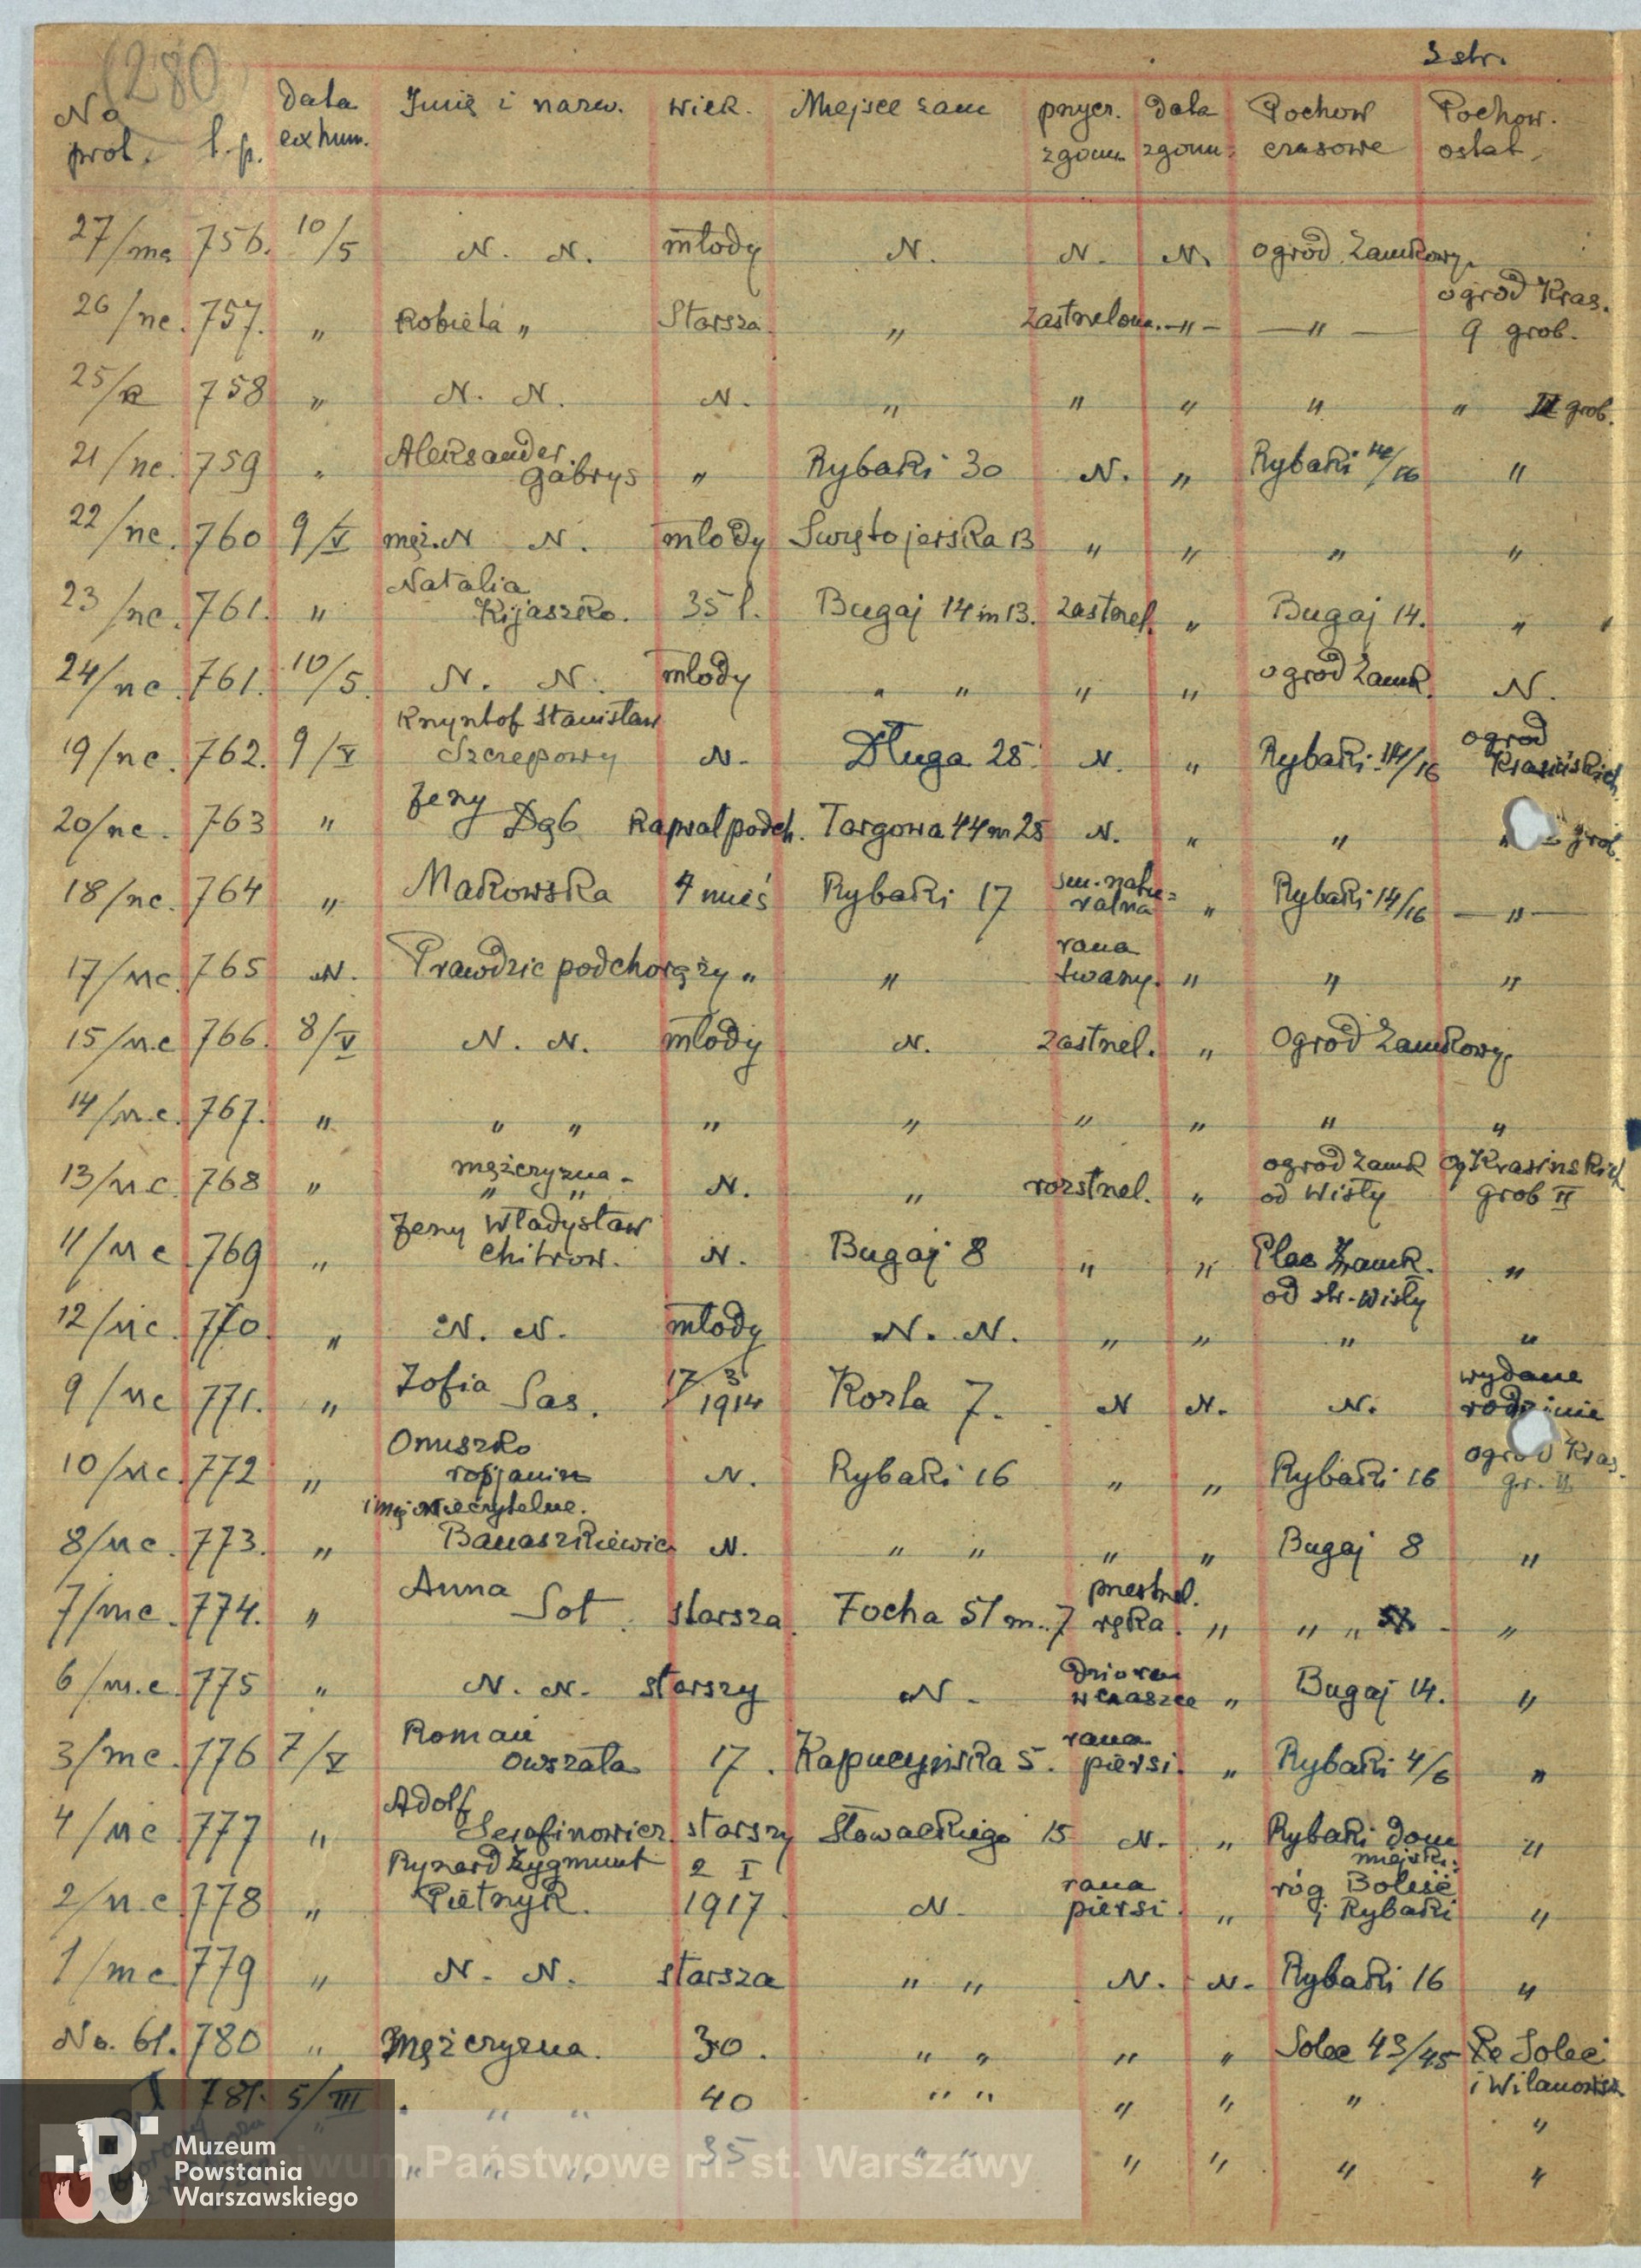 (280)
3 str.
No prot. l.p. data exhum. Imię i nazw. wiek. Miejsce zam przycz. zgonu data zgonu. Pochow czasowe Pochow. ostat.
27/nc 756. 10/5 N. N. młody N. N. N. ogród Zamkowy.
26/nc. 757. " Kobieta " Starsza. " zastrzelona. -"- -"- ogród Kras. 9 grob.
25/ 758 " N. N. N. " " " " " II grob.
21/nc. 759 " Aleksander Gabrys " Rybaki 30 N. " Rybaki 14/16 "
22/nc. 760 9/V męż. N N. młody Swiętojerska 13 " " " "
23/nc. 761. " Natalia Kijaszko. 35 l. Bugaj 14 m 13. zastrzel. " Bugaj 14. "
24/nc. 761. 10/5. N. N. młody " " " " ogród Zamk. N.
19/nc. 762. 9/V Krzysztof Stanisław Szczepowy N. Długa 25. N. " Rybaki 14/16 ogrod Krasińskich
20/nc. 763 " Jerzy Dąb Kapral podch. Targowa 44 m 25 N. " " " grob.
18/nc. 764 " Makowska 4 mieś Rybaki 17 śm. natu=ralna " Rybaki 14/16 -"-
17/nc. 765 N. Prawdzic podchorąży " " rana twarzy. " " "
15/nc 766. 8/V N. N. młody N. zastrzel. " Ogrod Zamkowy.
14/nc. 767. " " " " " " " " "
13/nc. 768 " mężczyzna - " " N. " rozstrzel. " ogrod Zamk od Wisły Og Krasinskich grob II
11/nc 769 " Jerzy Władysław Chitrow. N. Bugaj 8 " " Plac Zamk. od str. Wisły "
12/nc. 770. " N. N. młody N. N. " " " "
9/nc 771. " Zofia Sas. 17/3 1914 Kozla 7. N N. N. wydane rodzinie
10/nc. 772 " Onuszko rosjanin N. Rybaki 16 " " Rybaki 16 ogrod Kras. gr. II
8/nc. 773. " imię nieczytelne. Banaszkiewicz N. " " " " Bugaj 8 "
7/nc. 774. " Anna Sot. starsza. Focha 51 m. 7 przestrzel. ręka. " " " "
6/nc. 775 " N. N. starszy N. dziura w czaszce " Bugaj 14. "
3/nc. 776 7/V Roman Owszata 17. Kapucyńska 5. rana piersi. " Rybaki 4/6 "
4/nc 777 " Adolf Serafinowicz. starszy Słowackiego 15 N. " Rybaki dom miejski: "
2/nc 778 " Ryszard Zygmunt Pietrzyk. 2 I 1917. N. rana piersi. " róg Boleść i Rybaki "
1/nc 779 " N. N. starsza " " N. N. Rybaki 16 "
No. 61. 780 " Mężczyzna. 30. " " " " Solec 43/45 Solec i Wilanowska
781. 5/III " " 40 " " " " " "
" " " 35 " " " " " "
Archiwum Państwowe m. st. Warszawy
Muzeum
Powstania
Warszawskiego